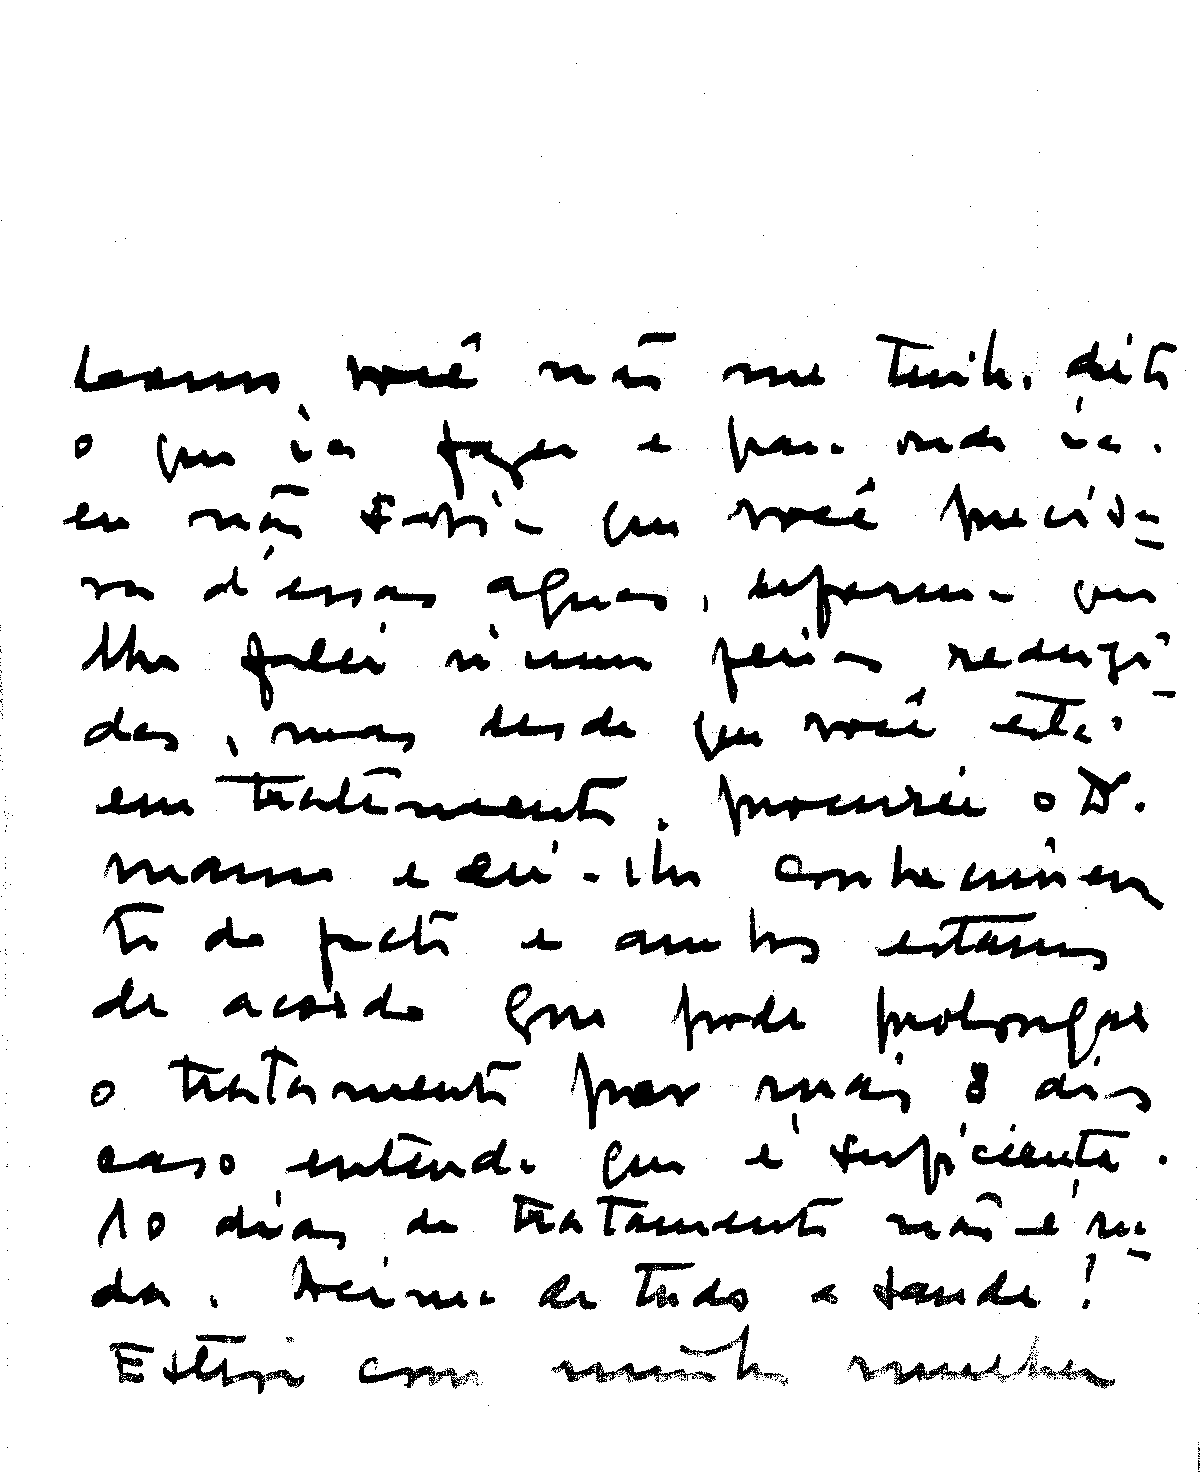 você não me tinha dito
o que ia fazer e para onde ia.
eu não sabia que você precisa-
va d'essas aguas, que
lhe falei n'umas ferias reduzi-
das, mas desde que você está
em tratamento, procurei o Dr.
Manno e dei-lhe conhecimen
to do facto e ambos estamos
de acordo que pode prolongar
o tratamento por mais 8 dias
caso entenda que é sufficiente.
10 dias de tratamento não é na-
da. Acima de tudo a saude!
Estar com minha mulher